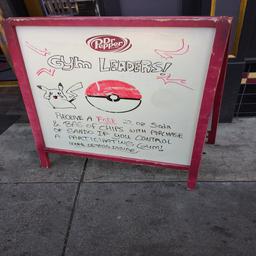 Dr Pepper
GYM LEADERS!
RECEIVE A FREE 21 oz Soda
& BAG OF CHIPS WITH PURCHASE
OF SANDO IF YOU CONTROL
A PARTICIPATING GYM!
MORE DETAILS INSIDE!